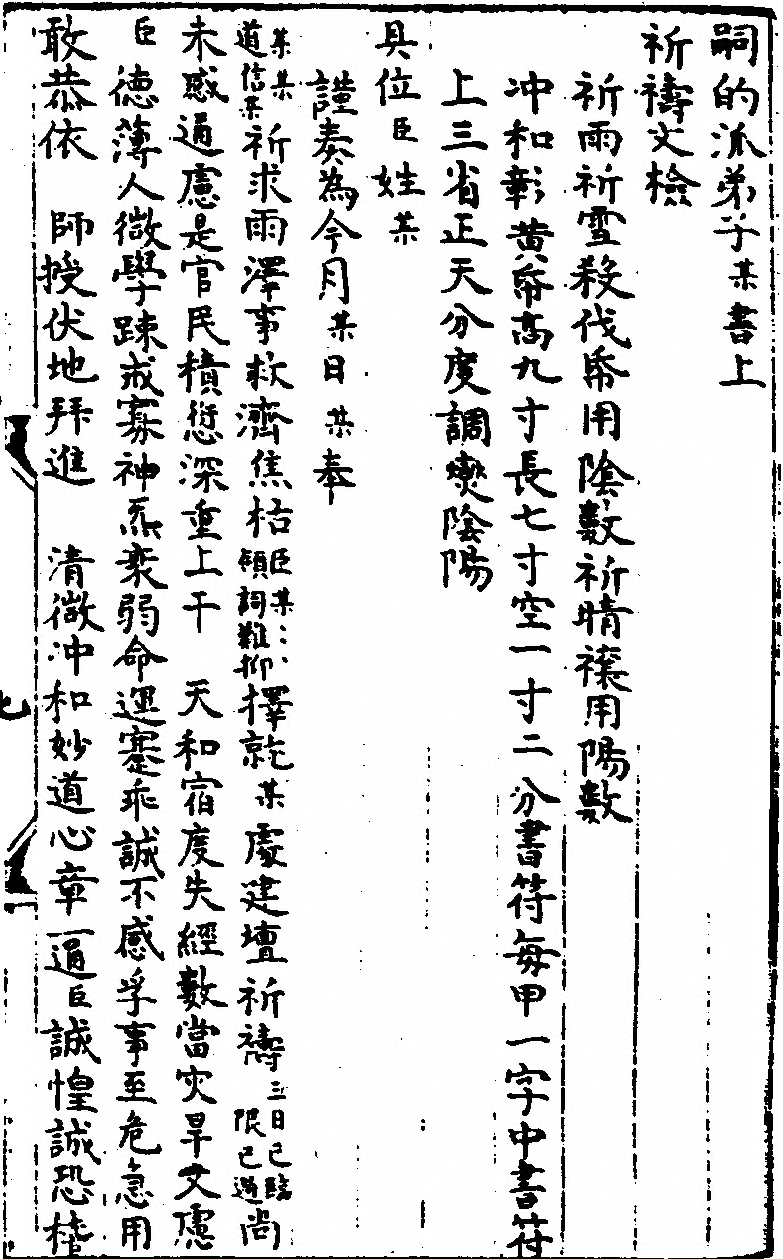 嗣的派弟子某書上
祈禱文檢
祈雨祈雪殺伐帋用陰數祈晴禳用陽數
冲和彰黄帋高九寸長七寸空一寸二分書符每甲一字中書符
上三省正天分度調爕陰陽
具位臣姓某
謹奏為今月某日某奉
道信某某某祈求雨澤事救濟焦枯臣某：：頋詞難抑擇就某處建壇祈禱三日已臨限已過尚
未感通慮是官民積愆深重上干　天和宿度失經數當灾旱又慮
臣德薄人微學踈戒寡神炁衰弱命運蹇乖誠不感孚事至危急用
敢恭依　師授伏地拜進　清微冲和妙道心章一通臣誠惶誠恐稽